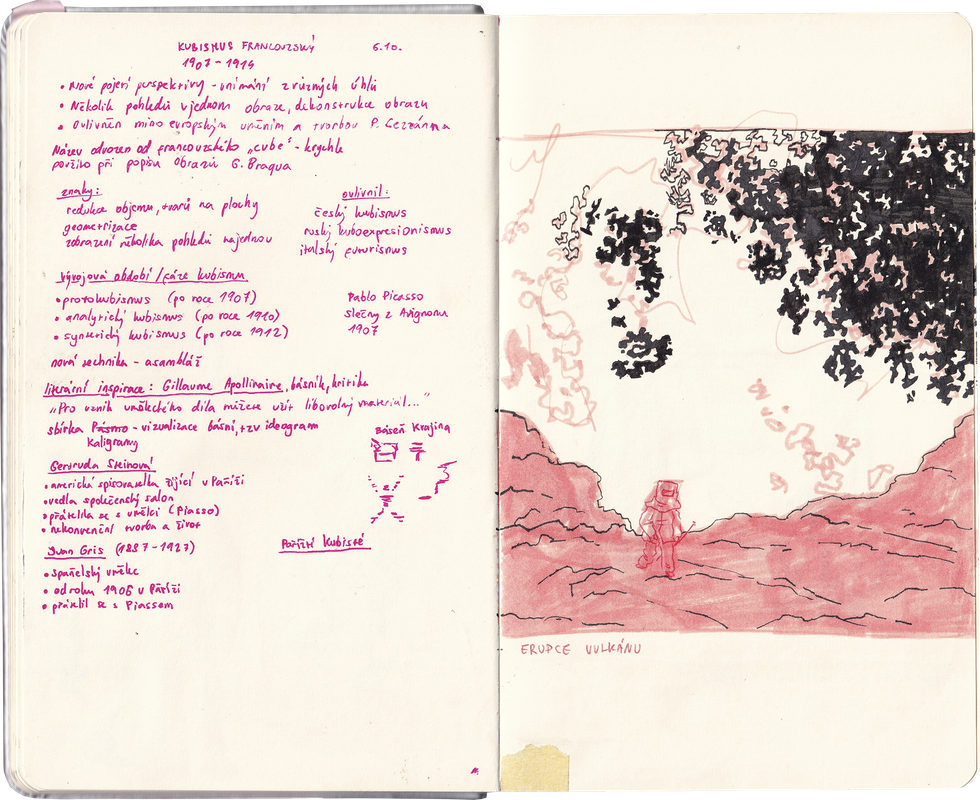 KUBISMUS FRANCOUZSKÝ 6.10.
1907-1914
• Nové pojetí perspektivy - vnímání z různých úhlů
• Několik pohledů v jednom obraze, dekonstrukce obrazu
• Ovlivněn mimo evropským uměním a tvorbou P. Cezzánna
Název odvozen od francouzského „cube" - krychle
použito při popisu obrazů G. Braqua
znaky:
redukce objemu, tvarů na plochy
geometrizace
zobrazení několika pohledů najednou
ovlivnil:
český kubismus
ruský kuboexpresionismus
italský futurismus
vývojová období / fáze kubismu
• protokubismus (po roce 1907)
• analytický kubismus (po roce 1910)
• syntetický kubismus (po roce 1912)
Pablo Picasso
slečny z Avignonu
1907
nová technika - asambláž
literární inspirace: Gillaume Apollinaire, básník, kritik
„Pro vznik uměleckého díla můžete užít libovolný materiál..."
sbírka Pásmo - vizualizace básní, tzv ideogram
Kaligramy
Báseň Krajina
Gertruda Steinová
• americká spisovatelka žijící v Paříži
• vedla společenský salon
• přátelila se s umělci (Piasso)
• nekonvenční tvorba a život
Juan Gris (1887-1927)
• španělský umělec
• od roku 1906 v Paříži
• přátelil se s Piassem
Pařížští Kubisté
ERUPCE VULKÁNU